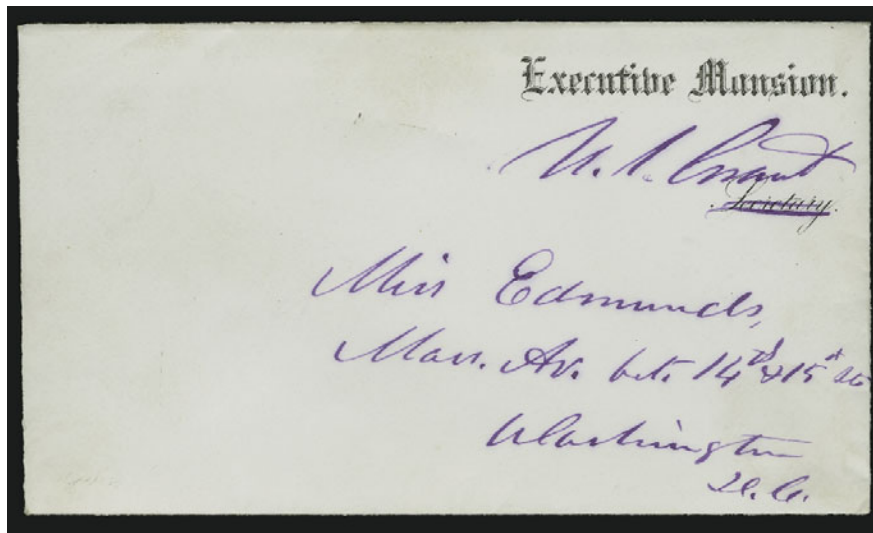 Executive Mansion.
U. S. Grant
Secretary.
Miss Edmunds,
Mass. Av. bet. 14th & 15th Sts
Washington
D.C.